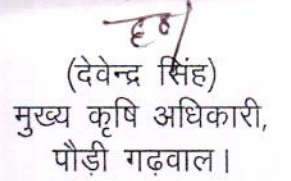 ह०/
(देवेन्द्र सिंह)
मुख्य कृषि अधिकारी,
पौड़ी गढ़वाल।